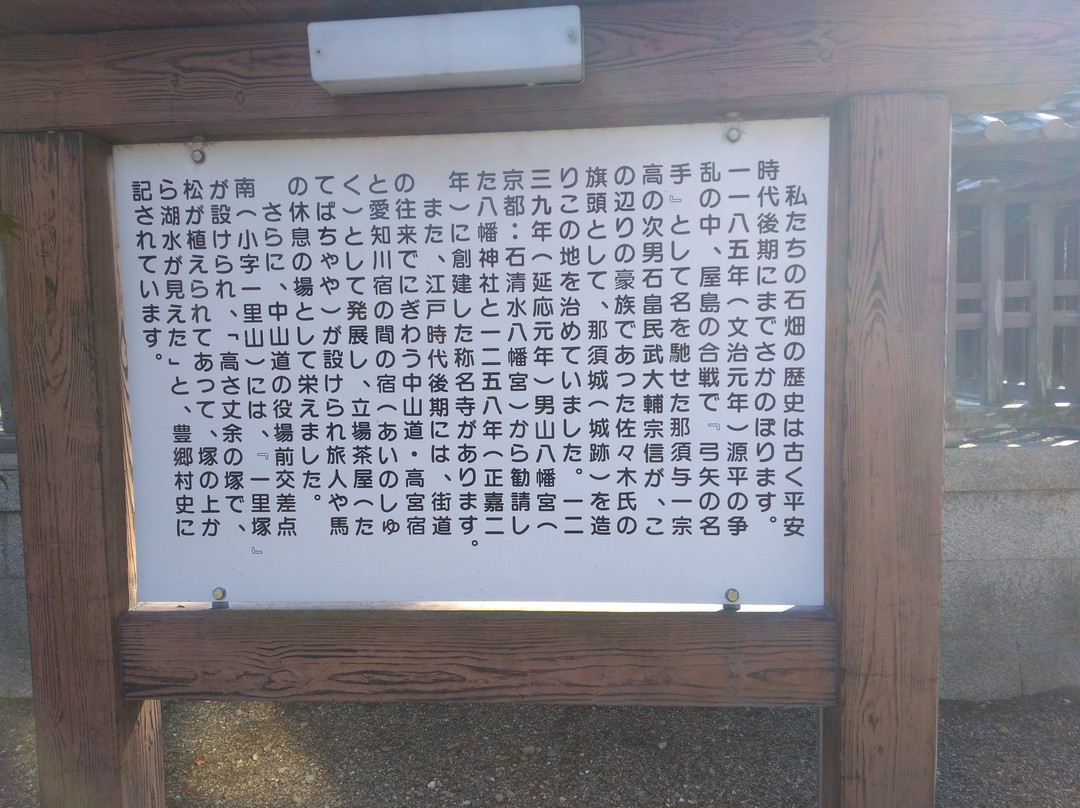 私たちの石畑の歴史は古く平安
時代後期にまでさかのぼります。
一一八五年（文治元年）源平の争
乱の中、屋島の合戦で『弓矢の名
手』として名を馳せた那須与一宗
高の次男石畠民武大輔宗信が、こ
の辺りの豪族であつた佐々木氏の
旗頭として、那須城（城跡）を造
りこの地を治めていました。一二
三九年（延応元年）男山八幡宮（
京都：石清水八幡宮）から勧請し
た八幡神社と一二五八年（正嘉二
年）に創建した称名寺があります。
また、江戸時代後期には、街道
の往来でにぎわう中山道・高宮宿
と愛知川宿の間の宿（あいのしゅ
く）として発展し、立場茶屋（た
てばちゃや）が設けられ旅人や馬
の休息の場として栄えました。
さらに、中山道の役場前交差点
南（小字一里山）には、『一里塚』
が設けられ、「高さ丈余の塚で、
松が植えられてあって、塚の上か
ら湖水が見えた」と、豊郷村史に
記されています。